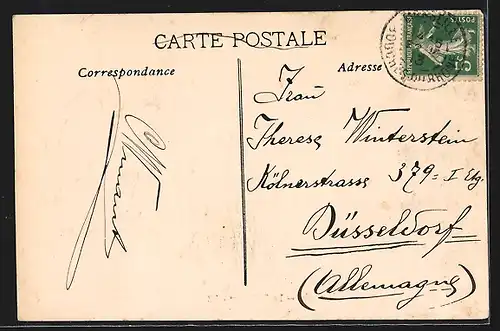 CARTE POSTALE
Correspondance
Adresse
POSTES
Frau
Therese Winterstein
Kölnerstrasse 379 = I Etg.
Düsseldorf
(Allemagne)